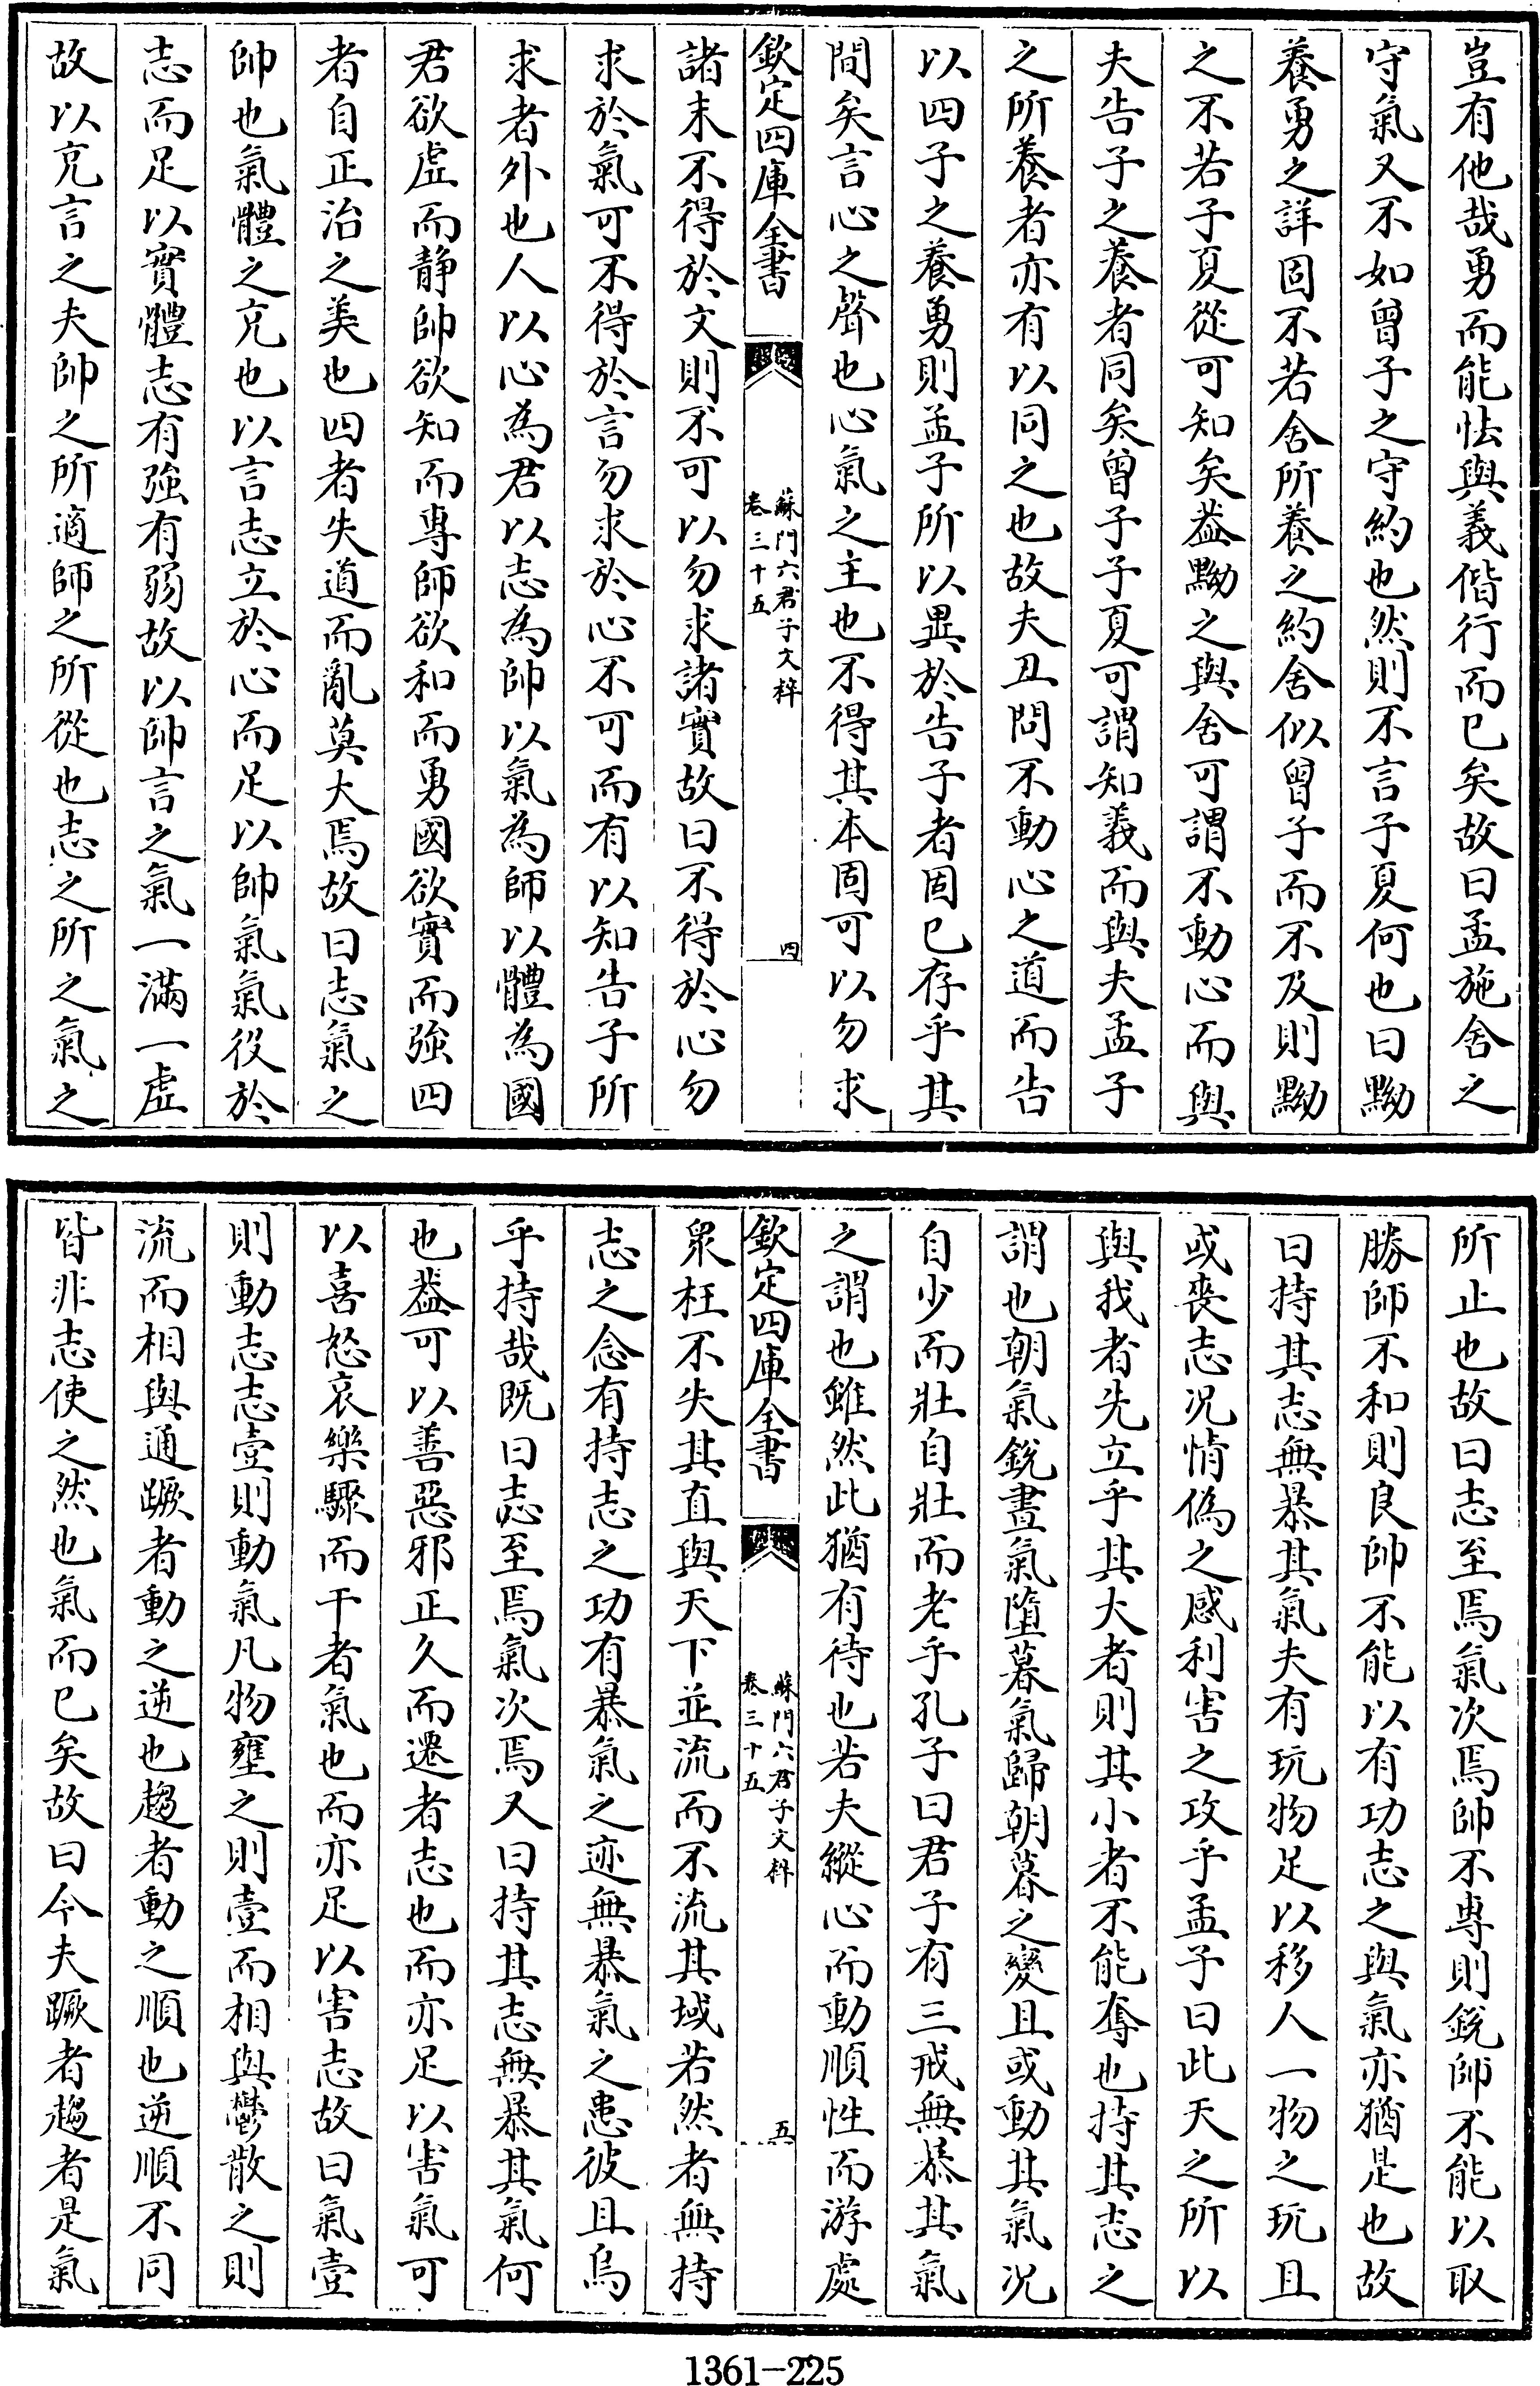 豈有他哉勇而能怯與義偕行而已矣故曰孟施舍之
守氣又不如曾子之守約也然則不言子夏何也曰黝
養勇之詳固不若舍所養之約舍似曾子而不及則黝
之不若子夏從可知矣葢黝之與舍可謂不動心而與
夫告子之養者同矣曾子子夏可謂知義而與夫孟子
之所養者亦有以同之也故夫丑問不動心之道而告
以四子之養勇則孟子所以異於告子者固已存乎其
間矣言心之聲也心氣之主也不得其本固可以勿求
欽定四庫全書
蘇門六君子文粹
卷三十五
四
諸末不得於文則不可以勿求諸實故曰不得於心勿
求於氣可不得於言勿求於心不可而有以知告子所
求者外也人以心為君以志為帥以氣為師以體為國
君欲虛而静帥欲知而專師欲和而勇國欲實而強四
者自正治之美也四者失道而亂莫大焉故曰志氣之
帥也氣體之充也以言志立於心而足以帥氣氣役於
志而足以實體志有強有弱故以帥言之氣一滿一虛
故以充言之夫帥之所適師之所從也志之所之氣之
所止也故曰志至焉氣次焉帥不專則銳師不能以取
勝師不和則良帥不能以有功志之與氣亦猶是也故
曰持其志無暴其氣夫有玩物足以移人一物之玩且
或喪志况情偽之感利害之攻乎孟子曰此天之所以
與我者先立乎其大者則其小者不能奪也持其志之
謂也朝氣銳晝氣墮暮氣歸朝暮之變且或動其氣况
自少而壯自壯而老乎孔子曰君子有三戒無暴其氣
之謂也雖然此猶有待也若夫縱心而動順性而游處
欽定四庫全書
蘇門六君子文粹
卷三十五
五
衆枉不失其直與天下並流而不流其域若然者無持
志之念有持志之功有暴氣之迹無暴氣之患彼且烏
乎持哉既曰志至焉氣次焉又曰持其志無暴其氣何
也葢可以善惡邪正久而遷者志也而亦足以害氣可
以喜怒哀樂驟而干者氣也而亦足以害志故曰氣壹
則動志志壹則動氣凡物壅之則壹而相與鬱散之則
流而相與通蹶者動之逆也趨者動之順也逆順不同
皆非志使之然也氣而已矣故曰今夫蹶者趨者是氣
1361-225